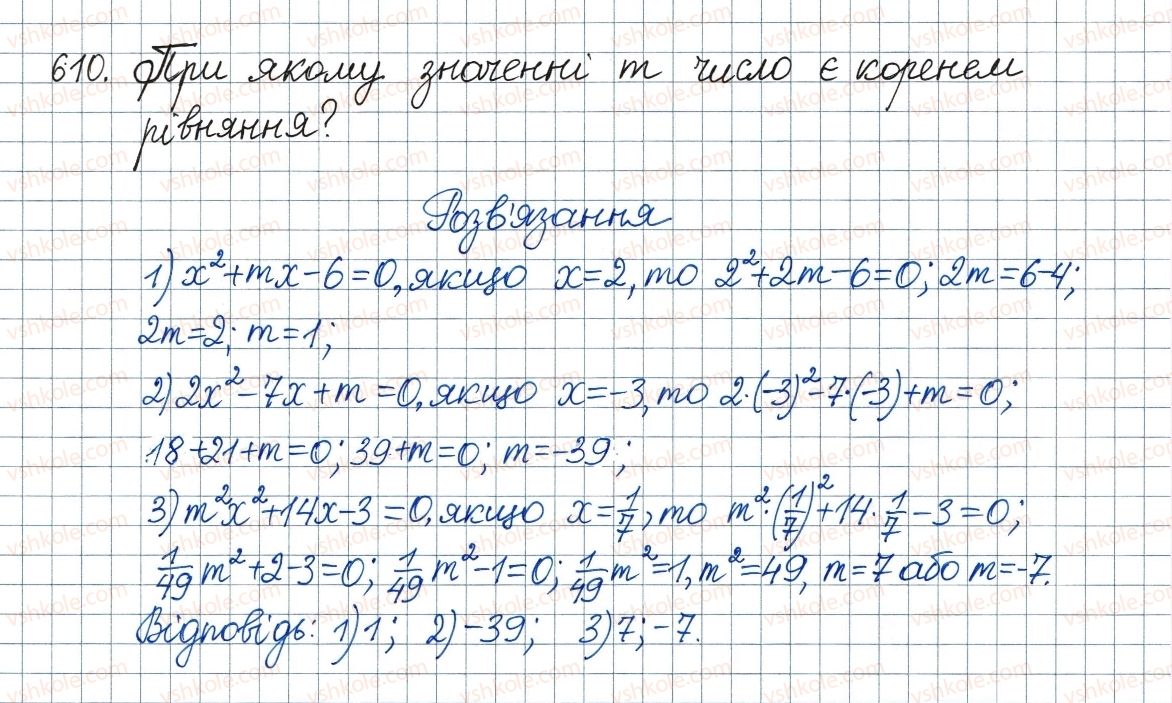 610. При якому значенні m число є коренем
рівняння?
Розв'язання
1) x²+mx-6=0, якщо x=2, то 2²+2m-6=0; 2m=6-4;
2m=2; m=1;
2) 2x²-7x+m=0, якщо x=-3, то 2·(-3)²-7·(-3)+m=0;
18+21+m=0; 39+m=0; m=-39;
3) m²x²+14x-3=0, якщо x=1/7, то m²·(1/7)²+14·1/7-3=0;
1/49 m²+2-3=0; 1/49 m²-1=0; 1/49 m²=1, m²=49, m=7 або m=-7.
Відповідь: 1) 1; 2) -39; 3) 7; -7.